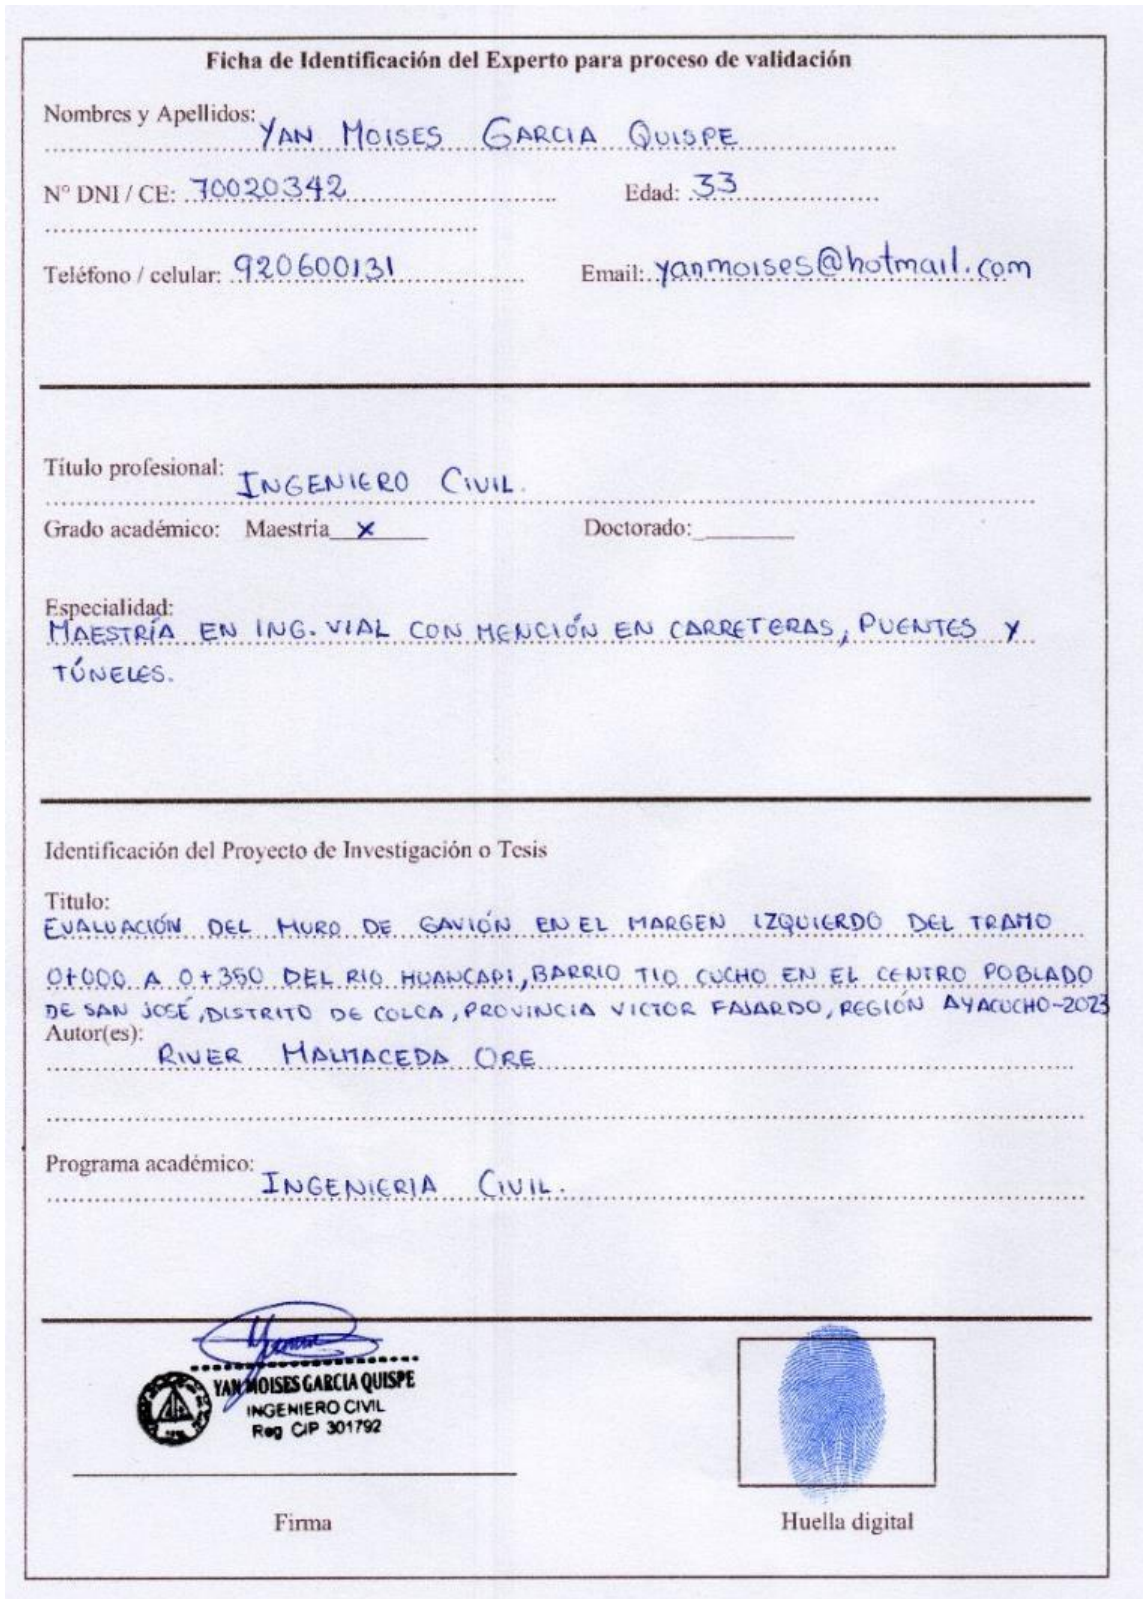 Ficha de Identificación del Experto para proceso de validación
Nombres y Apellidos: YAN MOISES GARCIA QUISPE
N° DNI / CE: 70020342 Edad: 33
Teléfono / celular: 920600131 Email: yanmoises@hotmail.com
Título profesional: INGENIERO CIVIL.
Grado académico: Maestría X Doctorado:
Especialidad:
MAESTRÍA EN ING. VIAL CON MENCIÓN EN CARRETERAS, PUENTES Y
TÚNELES.
Identificación del Proyecto de Investigación o Tesis
Titulo:
EVALUACIÓN DEL MURO DE GAVIÓN EN EL MARGEN IZQUIERDO DEL TRAMO
0+000 A 0+350 DEL RIO HUANCAPI, BARRIO TIO CUCHO EN EL CENTRO POBLADO
DE SAN JOSÉ, DISTRITO DE COLCA, PROVINCIA VICTOR FAJARDO, REGIÓN AYACUCHO-2023
Autor(es):
RIVER MALMACEDA ORE
Programa académico: INGENIERIA CIVIL.
YAN MOISES GARCIA QUISPE
INGENIERO CIVIL
Reg CIP 301792
Firma Huella digital